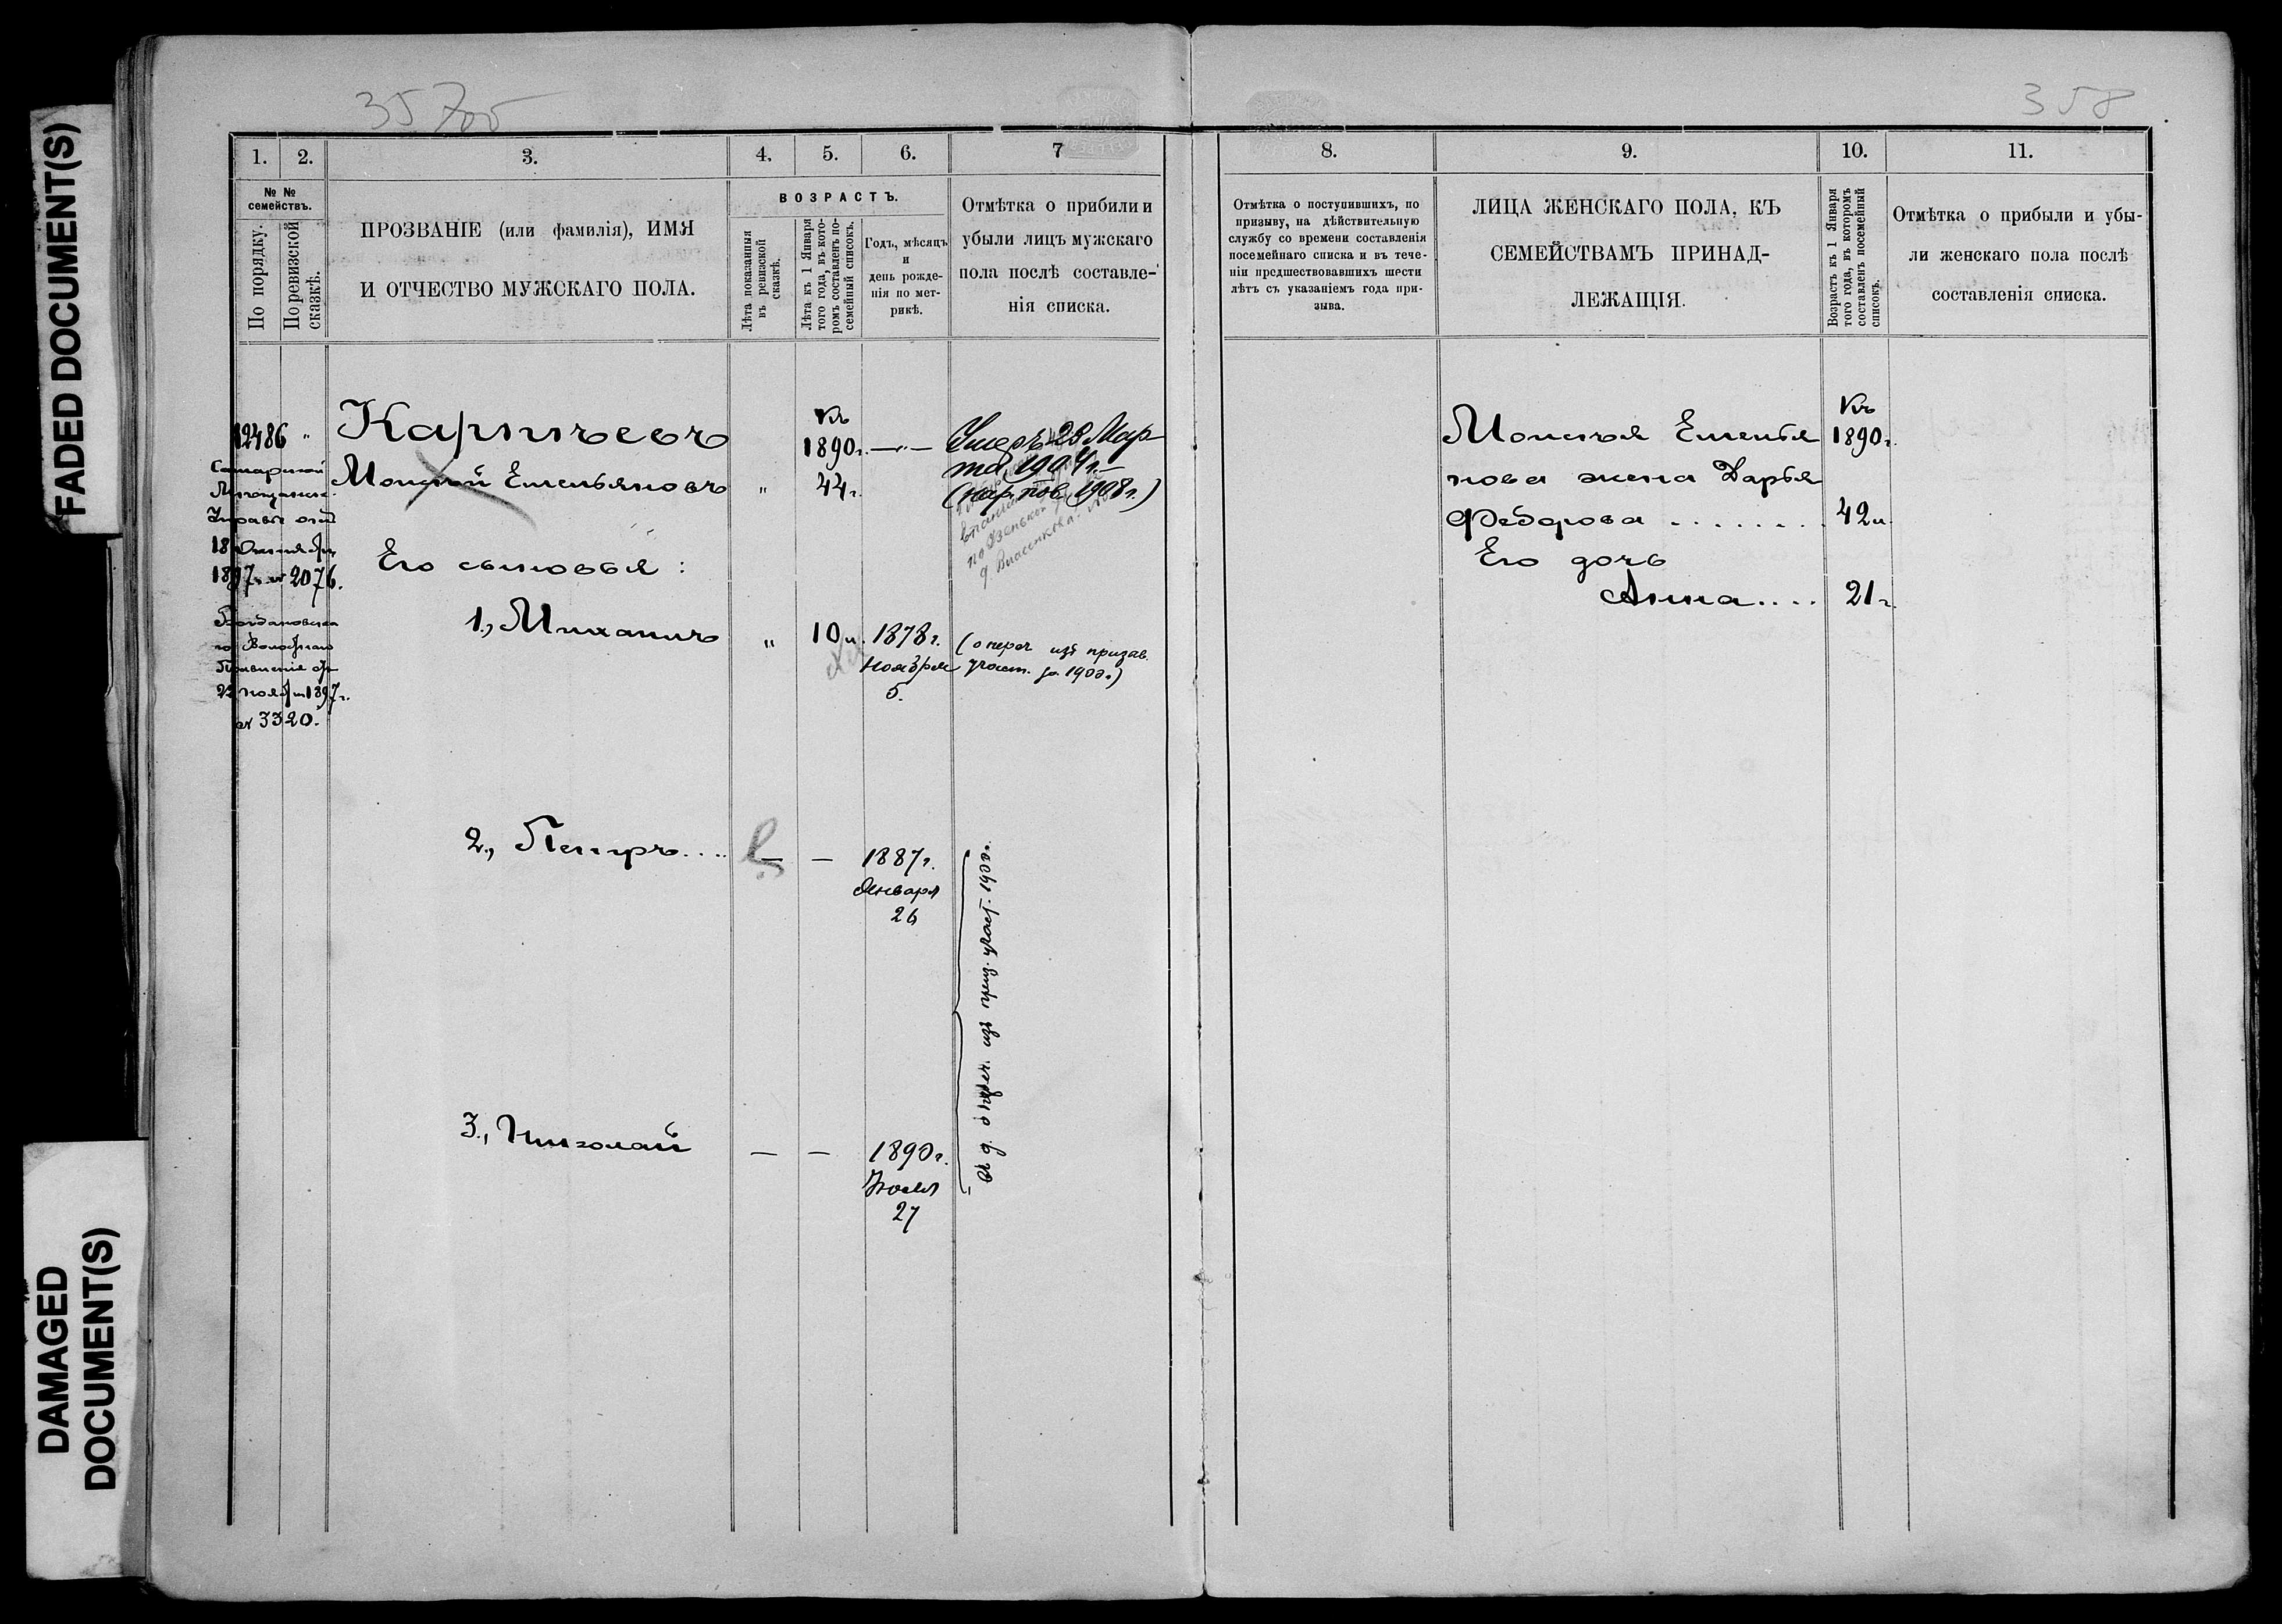 FADED DOCUMENT(S)
DAMAGED
DOCUMENT(S)
358
1.
2.
3.
4.
5.
6.
7
№ №
семействъ.
По порядку.
По ревизской
сказкѣ.
ПРОЗВАНІЕ (или фамилія), ИМЯ
И ОТЧЕСТВО МУЖСКАГО ПОЛА.
ВОЗРАСТЪ.
Лѣта показанныя
въ ревизской
сказкѣ.
Лѣта къ 1 Января
того года, въ кото-
ромъ составленъ по-
семейный списокъ.
Годъ, мѣсяцъ
и
день рожде-
нія по мет-
рикѣ.
Отмѣтка о прибыли и
убыли лицъ мужскаго
пола послѣ составле-
нія списка.
12486 "
Самарской
Мѣщанск.
Управы отъ
18 Октября
1897 г. № 2076.
Правленія от
22 нояб. 1897 г.
№ 3320.
Карпѣевъ
Моисей Емельяновъ
"
Къ
1890 г.
44 г.
—"—
Умеръ 28 Мар-
та 1904 г.
1908 г.)
Его сыновья:
1., Михаилъ
"
10 л.
1878 г.
Ноября
5.
(о переч изъ призыв.
участ. 1900 г.)
2., Петръ....
—
—
1887 г.
Января
26
3., Николай
—
—
1890 г.
27
о переч. изъ приз. участ. 1900 г.
8.
9.
10.
11.
Отмѣтка о поступившихъ, по
призыву, на дѣйствительную
службу со времени составленія
посемейнаго списка и въ тече-
ніи предшествовавшихъ шести
лѣтъ съ указаніемъ года при-
зыва.
ЛИЦА ЖЕНСКАГО ПОЛА, КЪ
СЕМЕЙСТВАМЪ ПРИНАД-
ЛЕЖАЩІЯ.
Возрастъ къ 1 Января
того года, въ которомъ
составленъ посемейный
списокъ.
Отмѣтка о прибыли и убы-
ли женскаго пола послѣ
составленія списка.
Моисея Емелья
нова жена Дарья
Федорова ........
Къ
1890 г.
42 л.
Его дочь
Анна....
21 г.